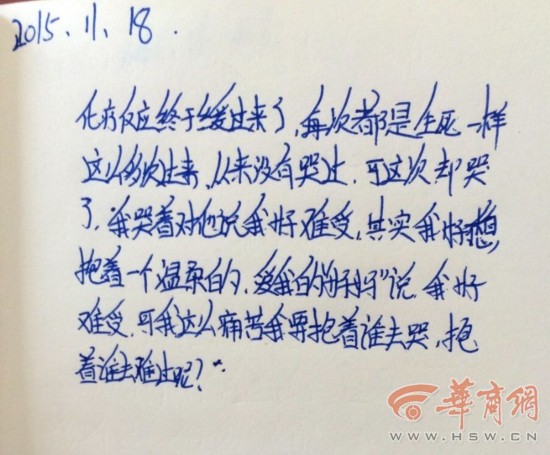 2015.11.18.
化疗反应终于缓过来了,每次都是生死一样
这么多次过来,从来没有哭过.可这次却哭
了.我哭着对他说我好难受,其实我好想,
抱着一个温柔的,爱我的"妈妈"说,我好
难受,可我这么痛苦我要抱着谁去哭,抱
着谁去难过呢?"
華商網
WWW.HSW.CN